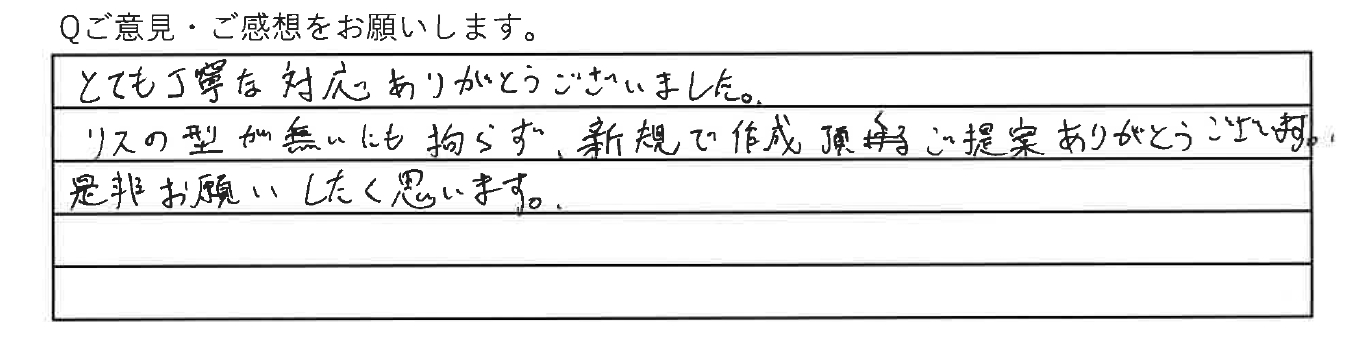 Qご意見・ご感想をお願いします。
とても丁寧な対応ありがとうございました。
リスの型が無いにも拘らず、新規で作成頂くご提案ありがとうございます。
是非お願いしたく思います。